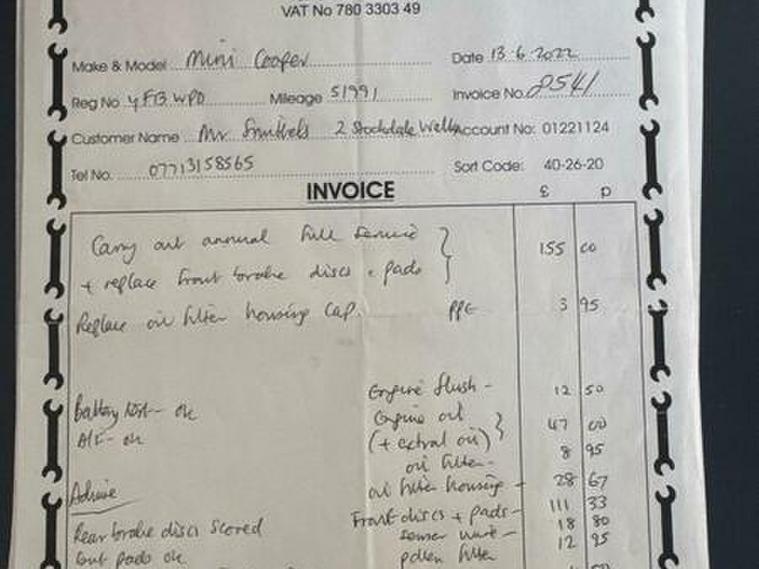 VAT No 780 3303 49
Make & Model Mini Cooper Date 13·6·2022
Reg No YF13 WPD Mileage 51991 Invoice No. 8541
Customer Name Mr 2 Stockdale Account No: 01221124
Tel No. 07713158565 Sort Code: 40-26-20
INVOICE £ p
Carry out annual full service
+ replace front brake discs + pads 155 00
Replace oil filter housing cap. 3 95
Engine flush - 12 50
Battery test - ok Engine oil
Alt - ok (+ extral oil) 47 00
oil filter - 8 95
Advise oil filter housing - 28 67
Front discs + pads - 111 33
Rear brake discs scored sensor - 18 80
but pads ok pollen filter 12 95